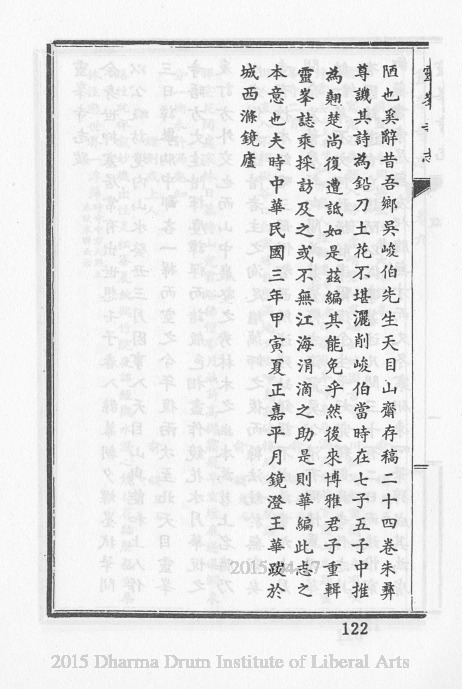 靈峯寺志
陋也奚辭昔吾鄉吳峻伯先生天目山齋存稿二十四卷朱彝
尊譏其詩為鉛刀土花不堪灑削峻伯當時在七子五子中推
為翹楚尚復遭詆如是茲編其能免乎然後來博雅君子重輯
靈峯誌乘採訪及之或不無江海涓滴之助是則華編此志之
本意也夫時中華民國三年甲寅夏正嘉平月鏡澄王華跋於
城西滌鏡廬
122
2015 Dharma Drum Institute of Liberal Arts